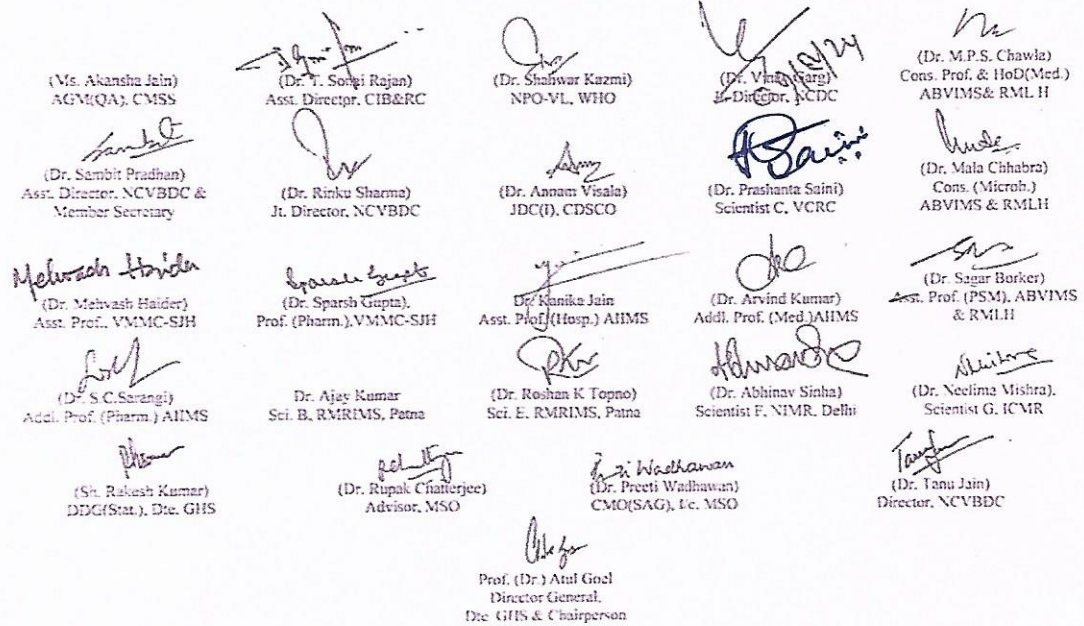 (Ms. Akansha Jain)
AGM(QA), CMSS
(Dr. T. Sonai Rajan)
Asst. Director, CIB&RC
(Dr. Shahwar Kazmi)
NPO-VL, WHO
(Dr. Vinay Garg)
Jt. Director, NCDC
(Dr. M.P.S. Chawla)
Cons. Prof. & HoD(Med.)
ABVIMS& RML H
(Dr. Sambit Pradhan)
Asst. Director, NCVBDC &
Member Secretary
(Dr. Rinku Sharma)
Jt. Director, NCVBDC
(Dr. Annam Visala)
JDC(I), CDSCO
Saini
(Dr. Prashanta Saini)
Scientist C, VCRC
(Dr. Mala Chhabra)
Cons. (Microb.)
ABVIMS & RMLH
Mehvash Haider
(Dr. Mehvash Haider)
Asst. Prof., VMMC-SJH
Sparsh Gupta
(Dr. Sparsh Gupta),
Prof. (Pharm.),VMMC-SJH
Dr. Kanika Jain
Asst. Prof.(Hosp.) AIIMS
(Dr. Arvind Kumar)
Addl. Prof. (Med.)AIIMS
(Dr. Sagar Borker)
Asst. Prof. (PSM), ABVIMS
& RMLH
(Dr. S.C.Sarangi)
Addl. Prof. (Pharm.) AIIMS
Dr. Ajay Kumar
Sci. B, RMRIMS, Patna
(Dr. Roshan K Topno)
Sci. E, RMRIMS, Patna
(Dr. Abhinav Sinha)
Scientist F, NIMR, Delhi
(Dr. Neelima Mishra),
Scientist G, ICMR
(Sh. Rakesh Kumar)
DDG(Stat.), Dte. GHS
(Dr. Rupak Chatterjee)
Advisor, MSO
Wadhawan
(Dr. Preeti Wadhawan)
CMO(SAG), I/c. MSO
(Dr. Tanu Jain)
Director, NCVBDC
Prof. (Dr.) Atul Goel
Director General,
Dte. GHS & Chairperson